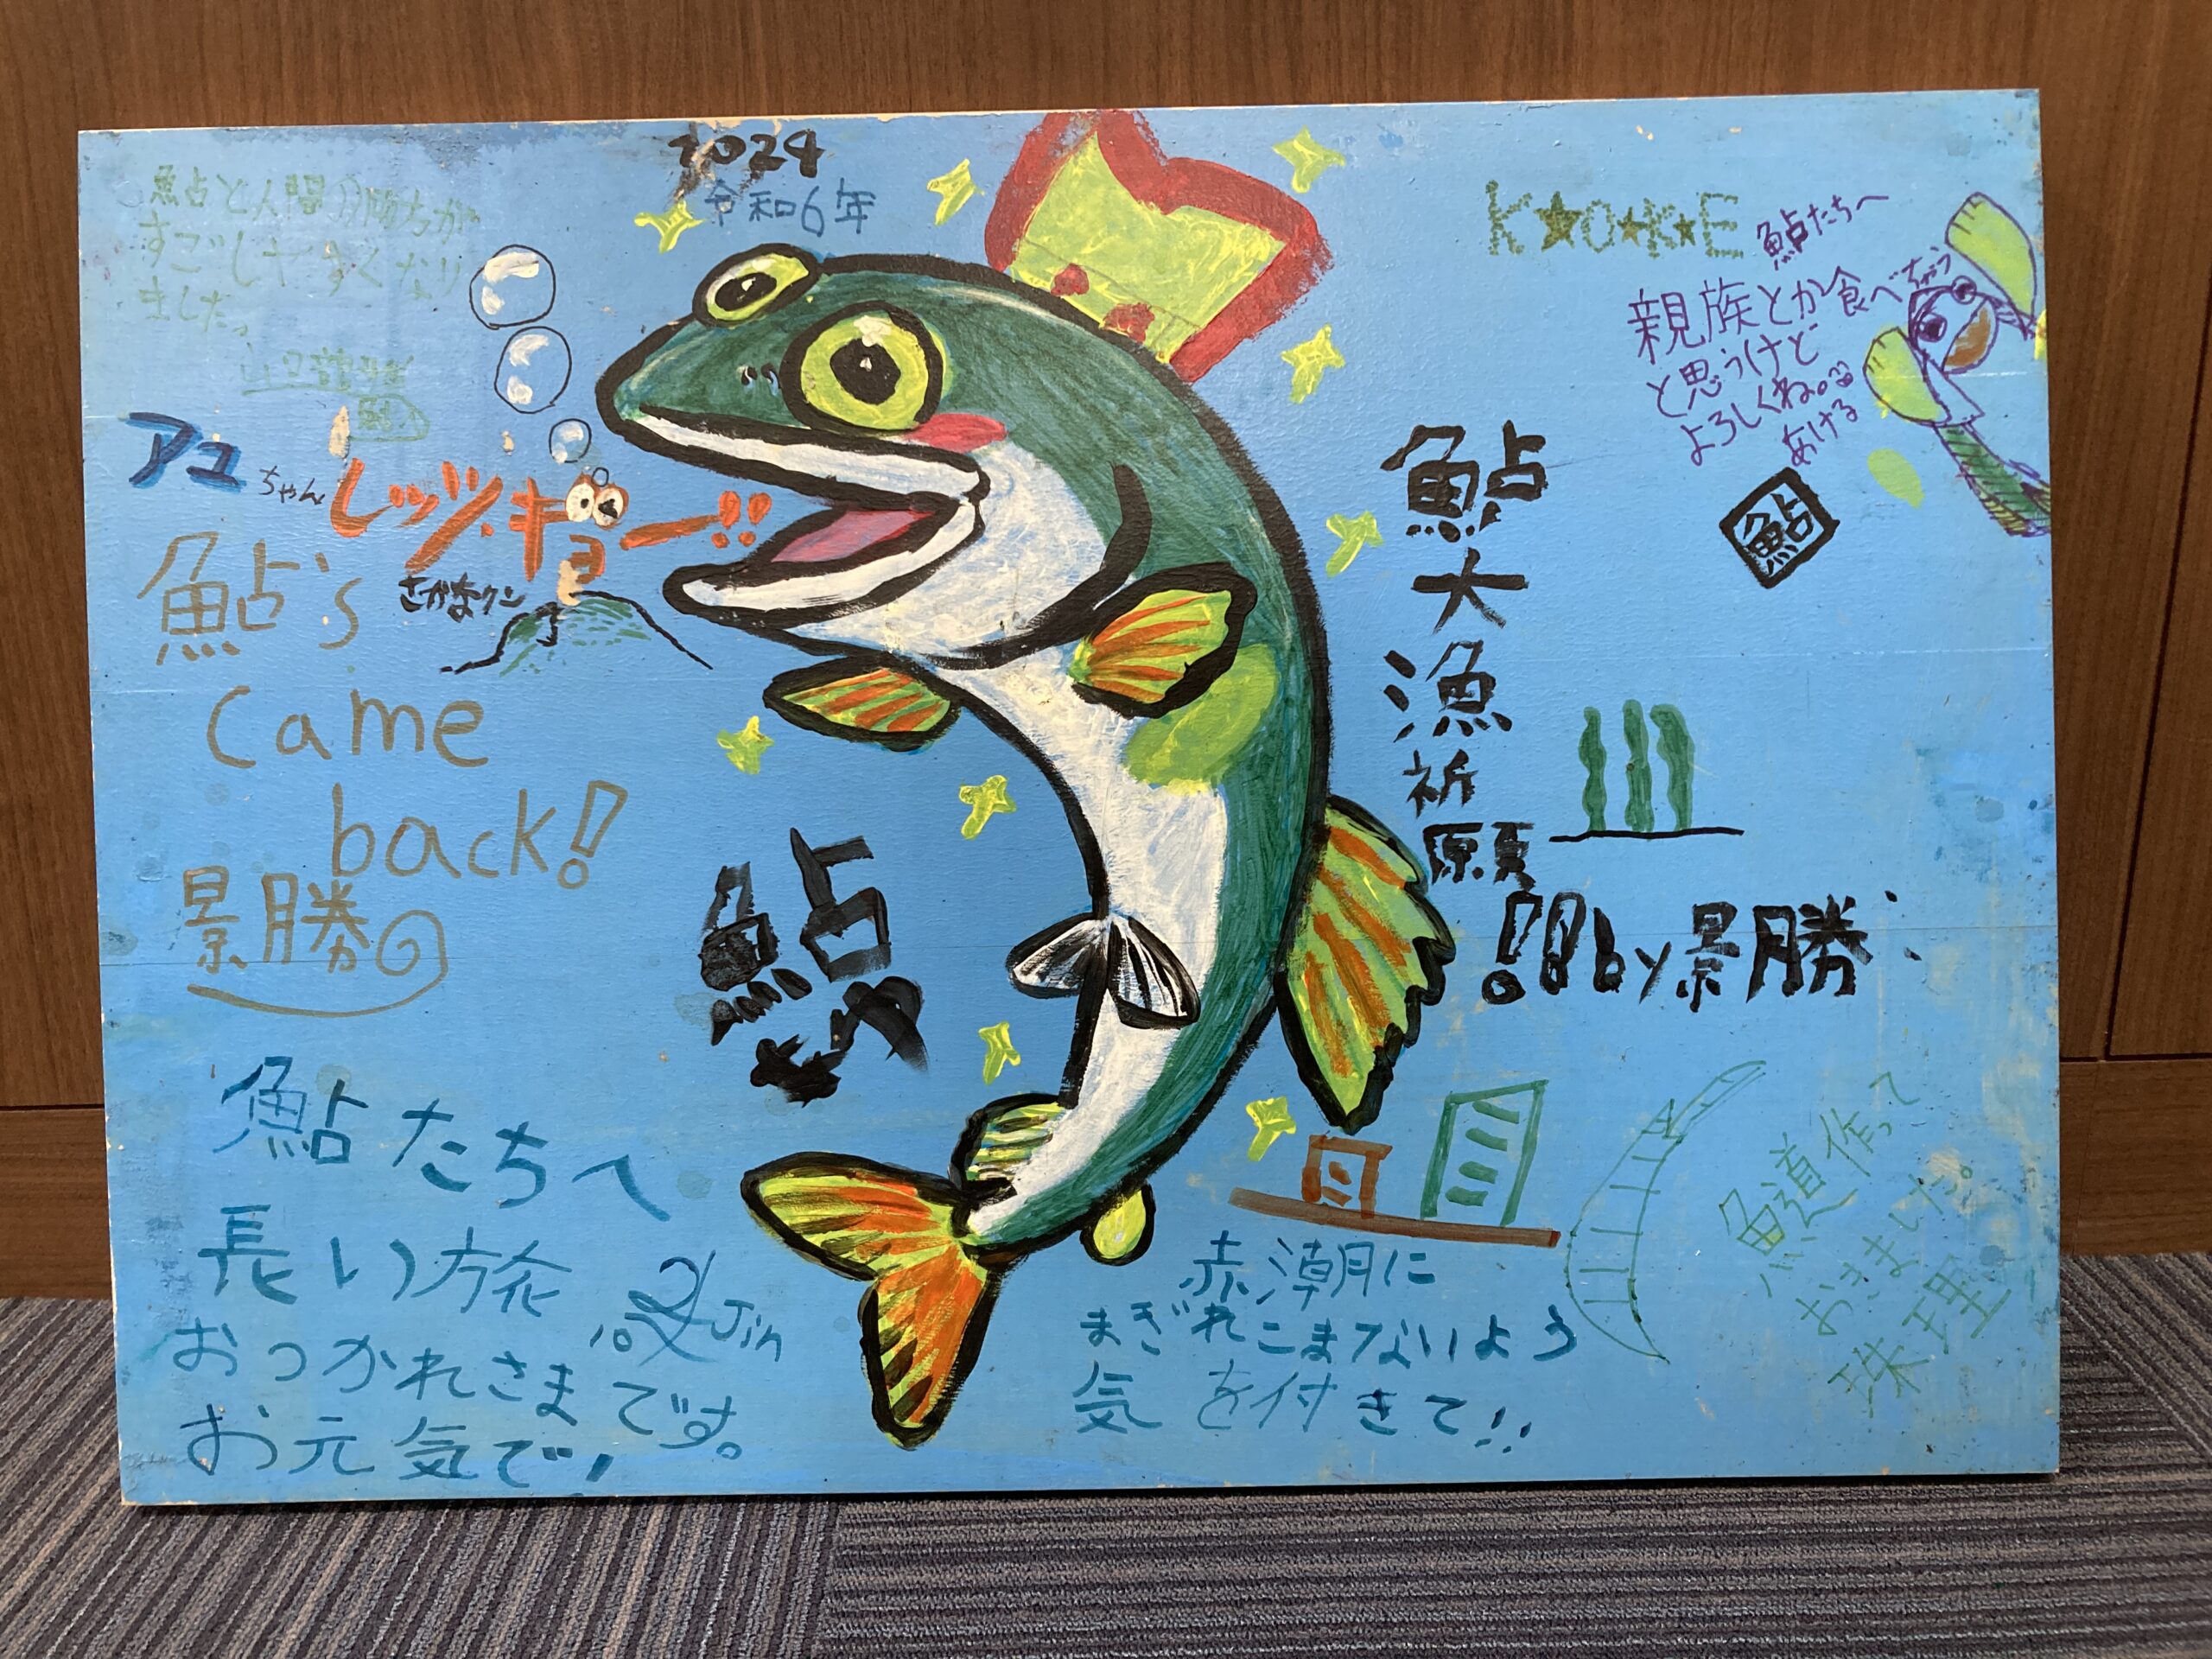 2024
令和6年
鮎と人間の両方が
すごしやすくなり
ました。
アユちゃん
レッツ・ギョー!!
さかなクン
鮎's
came
back!
景勝
鮎たちへ
長い旅
おつかれさまです。
お元気で!
Jin
鮎
K★O★K★E
鮎たちへ
親族とか食べちゃう
と思うけど
よろしくね。
あげる
鮎
鮎大漁祈願
!!! by 景勝
赤潮に
まぎれこまないよう
気を付きて!!
魚道作って
おきました。
珠理